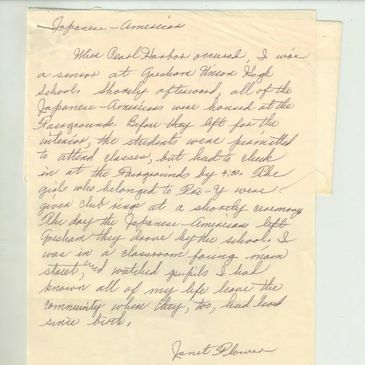 Japanese-American
When Pearl Harbor occured, I was
a senior at Gresham Union High
School. Shortly afterward, all of the
Japanese-Americans were housed at the
Fairgrounds. Before they left for the
interior, the students were permitted
to attend classes, but had to check
in at the Fairgrounds by 4:00. The
girls who belonged to Tri-Y were
given club rings at a shortly ceremony.
The day the Japanese-American left
Gresham they drove by the school. I
was in a classroom facing main
street, and watched pupils I had
known all of my life leave the
community where they, too, had lived
since birth.
Janet Flower